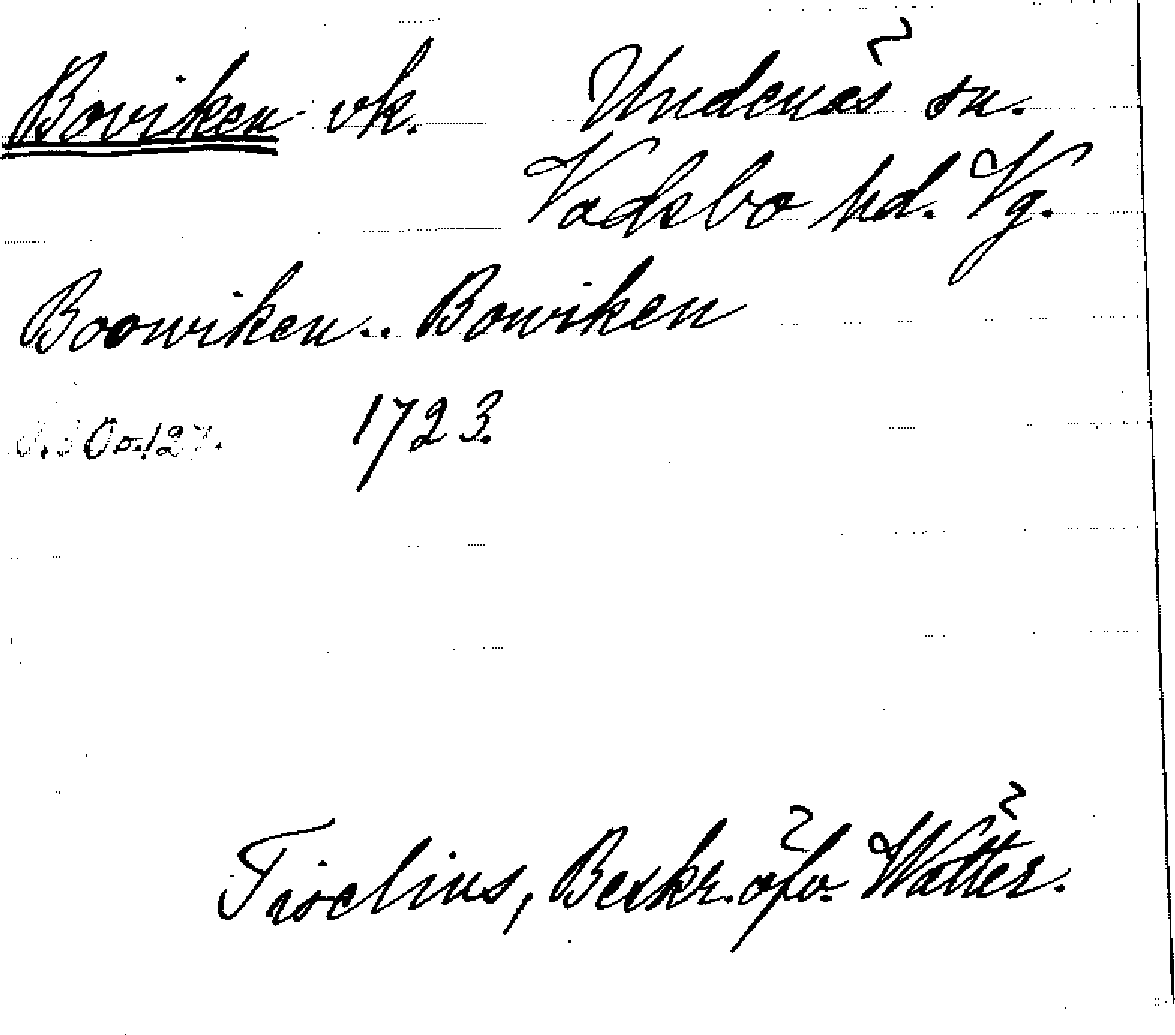 Boviken vk. Undenäs sn.
Vadsbo hd. Vg.
Boowiken.. Bowiken
s. 30 o. 127. 1723.
Tiselius, Beskr. öfv. Wätter.